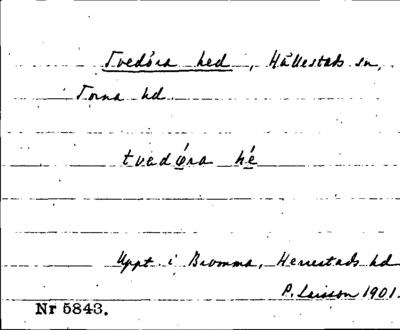 Tvedöra hed, Hällestads sn,
Torna hd
hé
Uppt. i Bromma, Herrestads hd
P. Larsson 1901.
Nr 5843.